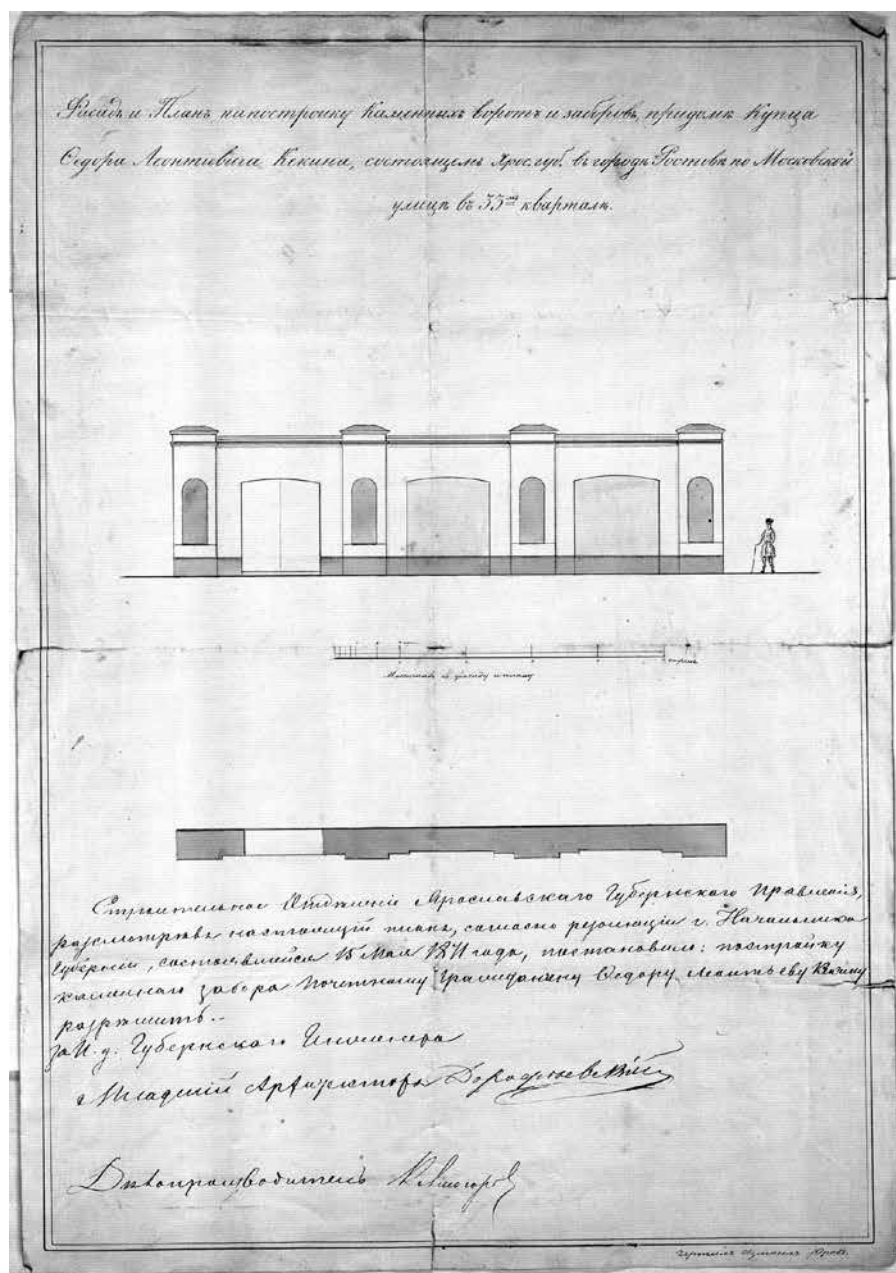 Фасадъ и Планъ на постройку Каменныхъ воротъ и заборовъ, при домѣ Купца
Ѳедора Леонтьевича Кекина, состоящемъ Яросл. губ. въ городѣ Ростовѣ по Московской
улицѣ въ 33мъ кварталѣ.
саженъ
Масштабъ къ фасаду и плану
Строительное Отдѣленіе Ярославскаго Губернскаго Правленія,
разсмотрѣвъ настоящій планъ, согласно резолюціи г. Начальника
Губерніи, состоявшейся 15 Мая 1871 года, постановило: постройку
каменнаго забора Почетному Гражданину Ѳедору Леонтьеву Кекину
разрѣшить.
За И. д. Губернскаго Инженера
Младшій Архитекторъ
Дѣлопроизводитель
чертилъ